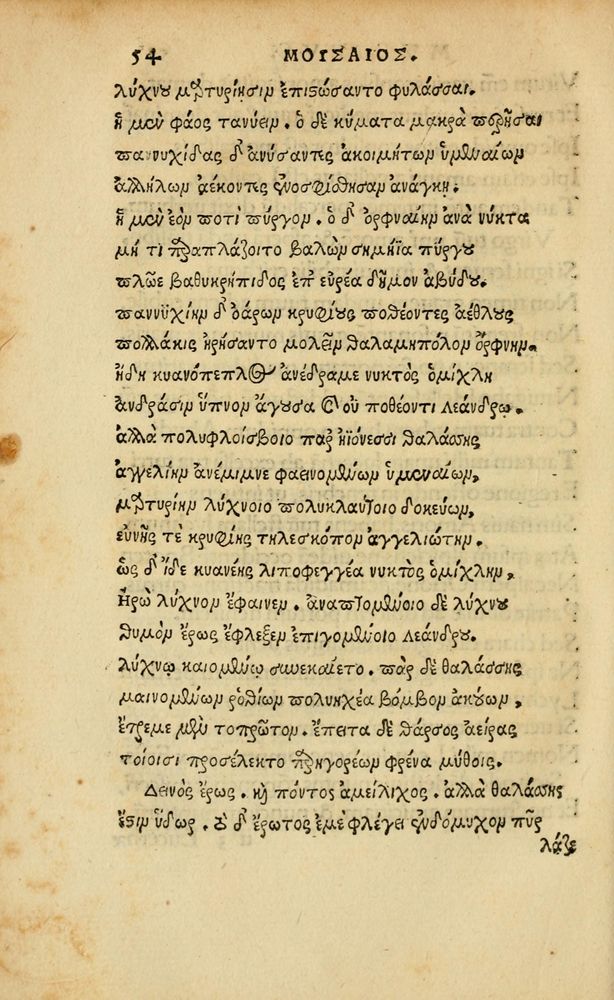 54 ΜΟΥΣΑΙΟΣ.
λύχνου μαρτυρίησιν ἐπιστώσαντο φυλάσσαι.
ἣ μὲν φάος τανύειν. ὁ δὲ κύματα μακρὰ περῆσαι
παννυχίδας δ' ἀνύσαντες ἀκοιμήτων ὑμεναίων
ἀλλήλων ἀέκοντες ἐνοσφίσθησαν ἀνάγκῃ.
ἣ μὲν ἑὸν ποτὶ πύργον. ὁ δ' ὀρφναίην ἀνὰ νύκτα
μή τι παραπλάζοιτο βαλὼν σημήϊα πύργου
πλῶε βαθυκρήπιδος ἐπ' εὐρέα δῆμον ἀβύδου.
παννυχίην δ' ὀάρων κρυφίους ποθέοντες ἀέθλους
πολλάκις ἠρήσαντο μολεῖν θαλαμηπόλον ὄρφνην.
ἤδη κυανόπεπλος ἀνέδραμε νυκτὸς ὁμίχλη
ἀνδράσιν ὕπνον ἄγουσα καὶ οὐ ποθέοντι λεάνδρῳ.
ἀλλὰ πολυφλοίσβοιο παρ' ἠϊόνεσσι θαλάσσης
ἀγγελίην ἀνέμιμνε φαεινομένων ὑμεναίων,
μαρτυρίην λύχνοιο πολυκλαύτοιο δοκεύων,
εὐνῆς τὲ κρυφίης τηλεσκόπον ἀγγελιώτην.
ὡς δ' ἴδε κυανέης λιποφεγγέα νυκτὸς ὁμίχλην,
Ἡρὼ λύχνον ἔφαινεν. ἀναπτομένοιο δὲ λύχνου
θυμὸν ἔρως ἔφλεξεν ἐπιγομένοιο λεάνδρου.
λύχνῳ καιομένῳ συνεκαίετο. πὰρ δὲ θαλάσσης
μαινομένων ῥοθίων πολυηχέα βόμβον ἀκούων,
ἔτρεμε μὲν τοπρῶτον. ἔπειτα δὲ θάρσος ἀείρας
τοίοισι προσέλεκτο παρηγορέων φρένα μύθοις.
Δεινὸς ἔρως. καὶ πόντος ἀμείλιχος. ἀλλὰ θαλάσσης
ἔστιν ὕδωρ. τὸ δ' ἔρωτος ἐμὲ φλέγει ἐνδόμυχον πῦρ
λάζε